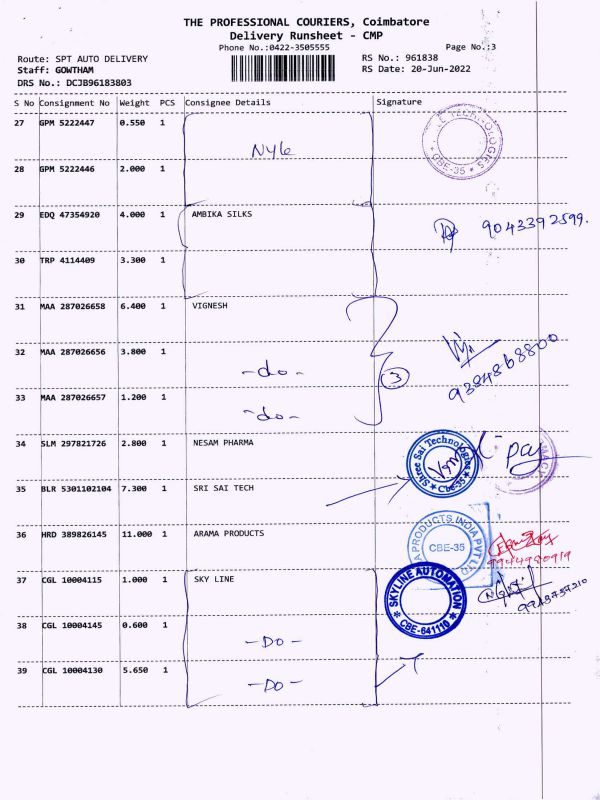 THE PROFESSIONAL COURIERS, Coimbatore
Delivery Runsheet - CMP
Phone No.:0422-3505555
Page No.:3
Route: SPT AUTO DELIVERY
RS No.: 961838
Staff: GOWTHAM
RS Date: 20-Jun-2022
DRS No.: DCJB96183803
S No Consignment No Weight PCS Consignee Details Signature
27 GPM 5222447 0.550 1
TECHNOLOGIES
* CBE-35 *
28 GPM 5222446 2.000 1
29 EDQ 47354920 4.000 1 AMBIKA SILKS
9043392599.
30 TRP 4114409 3.300 1
31 MAA 287026658 6.400 1 VIGNESH
32 MAA 287026656 3.800 1
-do- 3
9384868800
33 MAA 287026657 1.200 1
-do-
34 SLM 297821726 2.800 1 NESAM PHARMA
Shree Sai Technologies
* Cbe-35 *
35 BLR 5301102104 7.300 1 SRI SAI TECH
36 HRD 389826145 11.000 1 ARAMA PRODUCTS
A PRODUCTS INDIA PVT LTD
CBE-35
9944980919
37 CGL 10004115 1.000 1 SKY LINE
* SKYLINE AUTOMATION *
CBE-641110
9943737210
38 CGL 10004145 0.600 1
-Do-
39 CGL 10004130 5.650 1
-Do-